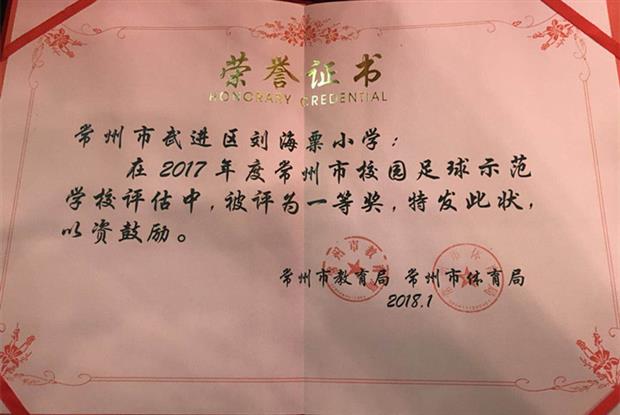 荣誉证书
HONORARY CREDENTIAL
常州市武进区刘海粟小学：
在2017年度常州市校园足球示范
学校评估中，被评为一等奖，特发此状，
以资鼓励。
常州市教育局 常州市体育局
2018.1